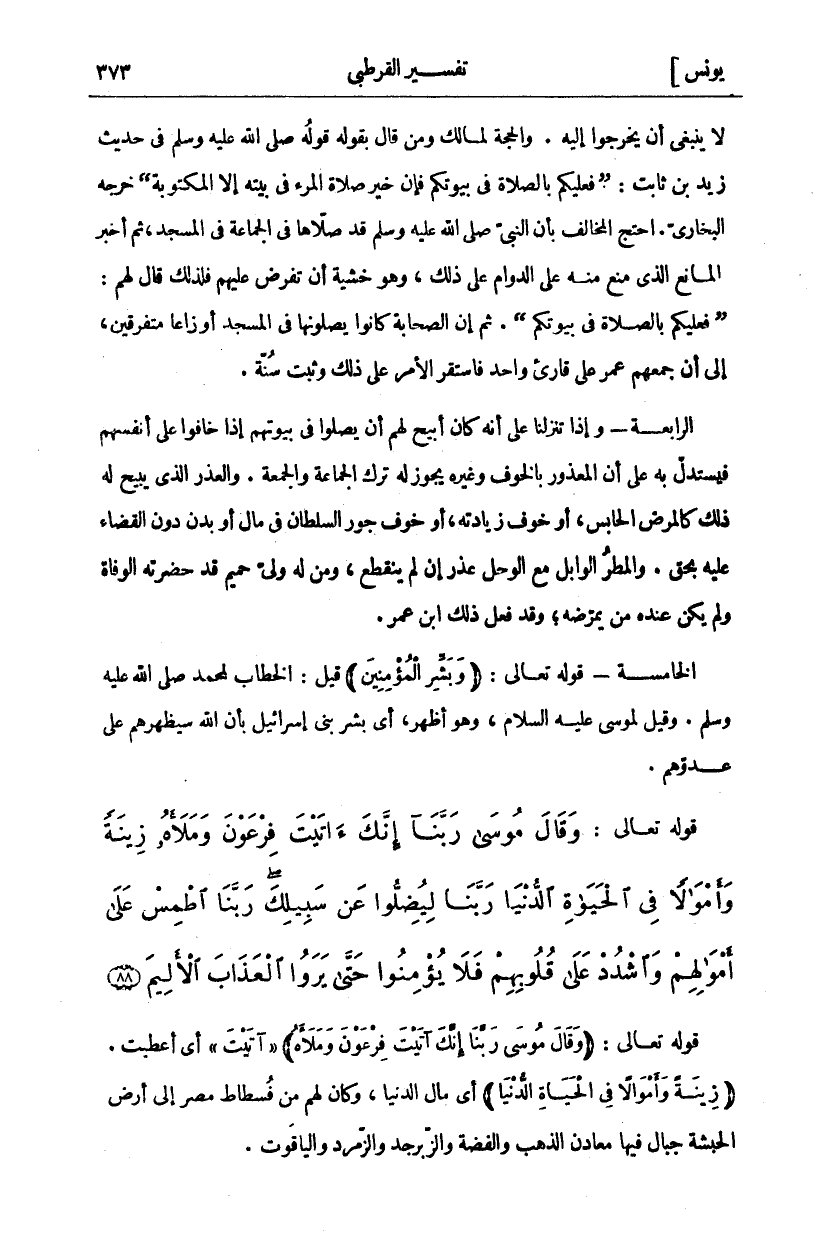 يونس ] تفســـير القرطبى ٣٧٣
لا ينبغى أن يخرجوا إليه . والحجة لمـالك ومن قال بقوله قولُه صلى الله عليه وسلم فى حديث
زيد بن ثابت : ”فعليكم بالصلاة فى بيوتكم فإن خير صلاة المرء فى بيته إلا المكتوبة“ خرجه
البخارىّ . احتج المخالف بأن النبىّ صلى الله عليه وسلم قد صلّاها فى الجماعة فى المسجد ، ثم أخبر
المـانع الذى منع منـه على الدوام على ذلك ، وهو خشية أن تفرض عليهم فلذلك قال لهم :
” فعليكم بالصـلاة فى بيوتكم “ . ثم إن الصحابة كانوا يصلونها فى المسجد أوزاعا متفرقين ،
إلى أن جمعهم عمر على قارئ واحد فاستقر الأمر على ذلك وثبت سُنّة .
الرابعــة — وإذا تنزلنا على أنه كان أبيح لهم أن يصلوا فى بيوتهم إذا خافوا على أنفسهم
فيستدلّ به على أن المعذور بالخوف وغيره يجوز له ترك الجماعة والجمعة . والعذر الذى يبيح له
ذلك كالمرض الحابس ، أو خوف زيادته ، أو خوف جور السلطان فى مال أو بدن دون القضاء
عليه بحق . والمطرُ الوابل مع الوحل عذر إن لم ينقطع ، ومن له ولىّ حميم قد حضرته الوفاة
ولم يكن عنده من يمرّضه ؛ وقد فعل ذلك ابن عمر .
الخامســـة — قوله تعـالى : ﴿ وَبَشِّرِ الْمُؤْمِنِينَ ﴾ قيل : الخطاب لمحمد صلى الله عليه
وسلم . وقيل لموسى عليـه السلام ، وهو أظهر ، أى بشر بنى إسرائيل بأن الله سيظهرهم على
عـــدوّهم .
قوله تعـالى : وَقَالَ مُوسَىٰ رَبَّنَآ إِنَّكَ ءَاتَيْتَ فِرْعَوْنَ وَمَلَأَهُۥ زِينَةً
وَأَمْوَٰلًا فِى ٱلْحَيَوٰةِ ٱلدُّنْيَا رَبَّنَـا لِيُضِلُّوا عَن سَبِيلِكَۖ رَبَّنَا ٱطْمِسْ عَلَىٰ
أَمْوَٰلِهِمْ وَٱشْدُدْ عَلَىٰ قُلُوبِهِمْ فَلَا يُؤْمِنُوا حَتَّىٰ يَرَوُا ٱلْعَذَابَ ٱلْأَلِيمَ ﴿٨٨﴾
قوله تعـالى : ﴿ وَقَالَ مُوسَى رَبَّنَا إِنَّكَ آتَيْتَ فِرْعَوْنَ وَمَلَأَهُ ﴾ « آتَيْتَ » أى أعطيت .
﴿ زِينَـةً وَأَمْوَالًا فِى الْحَيَـاةِ الدُّنْيَا ﴾ أى مال الدنيا ، وكان لهم من فُسطاط مصر إلى أرض
الحبشة جبال فيها معادن الذهب والفضة والزّبرجد والزّمرد والياقوت .